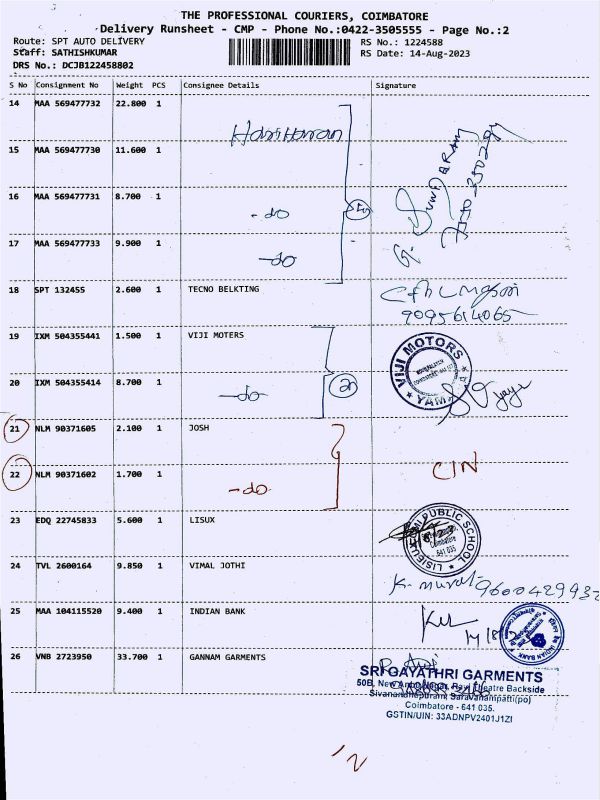 THE PROFESSIONAL COURIERS, COIMBATORE
Delivery Runsheet - CMP - Phone No.:0422-3505555 - Page No.:2
Route: SPT AUTO DELIVERY
RS No.: 1224588
Staff: SATHISHKUMAR
RS Date: 14-Aug-2023
DRS No.: DCJB122458802
S No Consignment No Weight PCS Consignee Details Signature
14 MAA 569477732 22.800 1
Hariharan
15 MAA 569477730 11.600 1
16 MAA 569477731 8.700 1
-do
17 MAA 569477733 9.900 1
-do
G. SUNDARAM
18 SPT 132455 2.600 1 TECNO BELKTING
9095614065
19 IXM 504355441 1.500 1 VIJI MOTERS
VIJI MOTORS
20 IXM 504355414 8.700 1
-do
21 NLM 90371605 2.100 1 JOSH
CIN
22 NLM 90371602 1.700 1
-do
23 EDQ 22745833 5.600 1 LISUX
PUBLIC SCHOOL
Coimbatore
641 035
24 TVL 2600164 9.850 1 VIMAL JOTHI
K. Murali
25 MAA 104115520 9.400 1 INDIAN BANK
INDIAN BANK
26 VNB 2723950 33.700 1 GANNAM GARMENTS
SRI GAYATHRI GARMENTS
Theatre Backside
Sivanandhapuram, Saravanampatti(po)
Coimbatore - 641 035.
GSTIN/UIN: 33ADNPV2401J1ZI